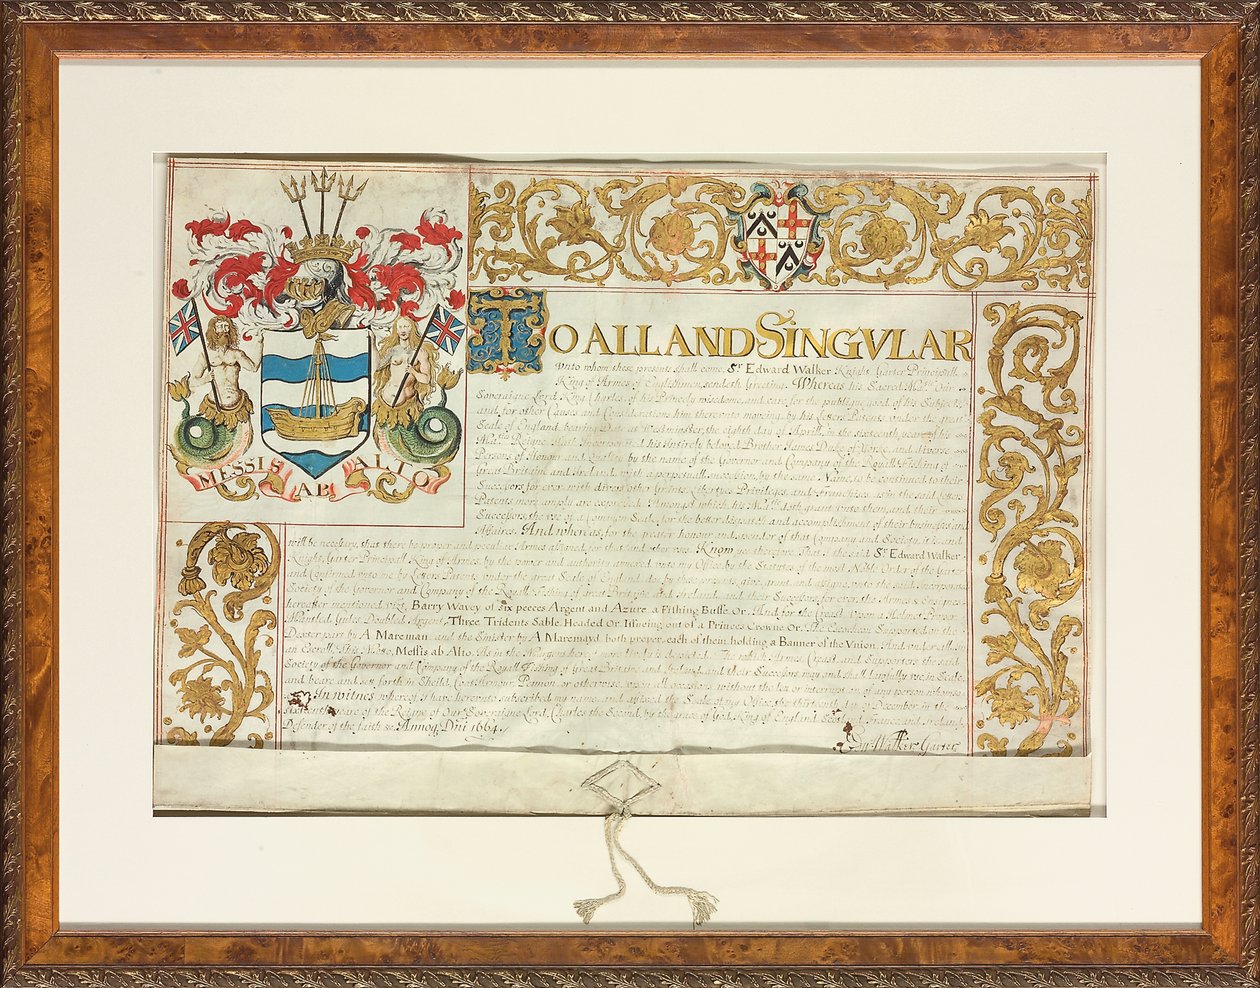 MESSIS AB ALTO
TO ALL AND SINGVLAR
unto whom these presents shall come, Sr. Edward Walker Knight Garter Principall
King of Armes of Englishmen sendeth Greeting. Whereas his Sacred Maty. Our
Soveraigne Lord King Charles of his Princely wisedome, and care for the publique good of his Subjects,
and for other Causes and Considerations him thereunto moving, by his Letters Patents under the great
Seale of England bearing Date at Westminster, the eighth day of Aprill, in the sixteenth yeare of his
Maties. Reigne, hath Incorporated his intirely beloved Brother James Duke of Yorke, and diverse
Persons of Honour and Quality by the name of the Governor and Company of the Royall Fishing of
Great Britaine and Ireland, with a perpetuall succession, by the same Name, to be continued to their
Successors for ever, with divers other Grants, Liberties, Priviledges, and Franchises, as in the said Letters
Patents more amply are expressed. Amongst which his Maty. doth grant unto them, and their
Successors, the use of a Common Seale, for the better dispatch and accomplishment of their businesses and
Affaires. And whereas, for the greater honour and splendor of that Company and Society, it is and
will be necessary, that there be proper and peculiar Armes assigned for that and other uses. Know yee therefore, That I the said Sr. Edward Walker
Knight, Garter Principall King of Armes, by the power and authority annexed unto my Office by the Statutes of the most Noble Order of the Garter
and Confirmed unto me by Letters Patents under the great Seale of England, do by these presents, give, grant, and assigne, unto the aforesaid
Society of the Governor and Company of the Royall Fishing of great Britaine and Ireland, and their Successors for ever, the Armes & Ensignes
hereafter mentioned, vizt. Barry Wavey of six peeces Argent and Azure, a Fishing Busse Or. And for the Creast, upon a Helmet Proper
Mantled Gules Doubled Argent, Three Tridents Sable, Headed Or, Issueing out of a Princes Crowne Or. The Escocheon Supported on the
Dexter part by A Mareman, and the Sinister by A Maremayd both proper, each of them holding a Banner of the Union. And under all, in
an Escroll, this Motto, Messis ab Alto. As in the Margent here, more lively is depicted. The which Armes, Creast, and Supporters, the said
Society of the Governor and Company of the Royall Fishing of Great Britaine and Ireland, and their Successors, may and shall lawfully use in Seale,
and beare and set forth in Sheild, Coat-Armour, Pennon, or otherwise, upon all occasions, without the let or interruption of any person whomsoever.
In witnes whereof, I have hereunto subscribed my name, and affixed the Seale of my Office, this thirteenth day of December, in the
sixteenth yeare of the Reigne of Our Soveraigne Lord, Charles the Second, by the grace of God, King of England, Scotland, France, and Ireland,
Defender of the Faith &c. Annoq. Dni 1664.
Edw: Walker Garter